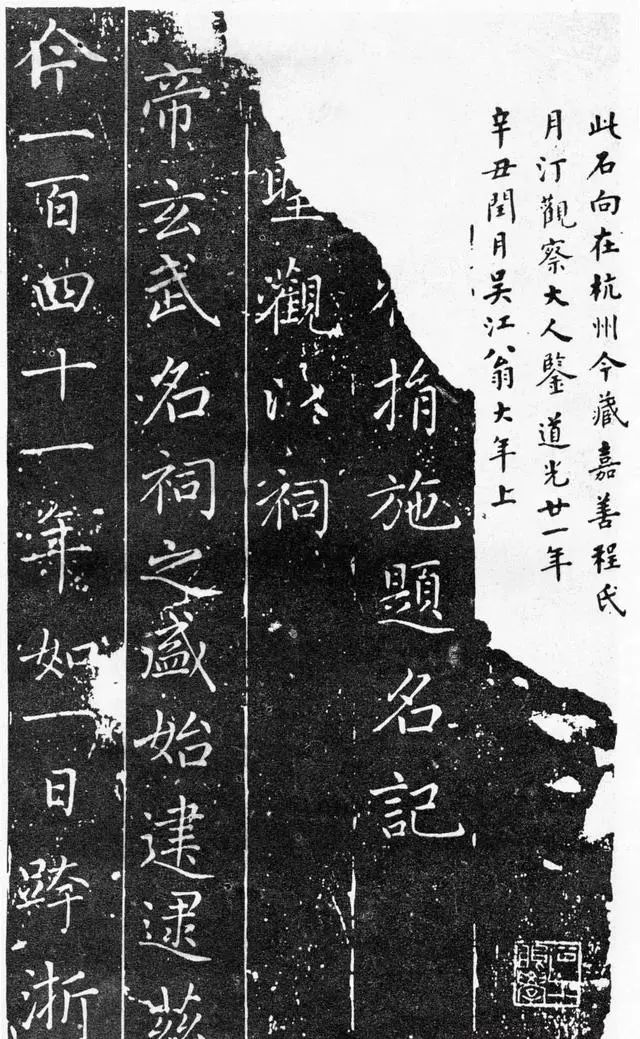 此石向在杭州今藏嘉善程氏
月汀觀察大人鑒道光廿一年
辛丑閏月吳江翁大年上
捐施題名記
聖觀祠
帝玄武名祠之盛始建逮茲
今一百四十一年如一日跨浙